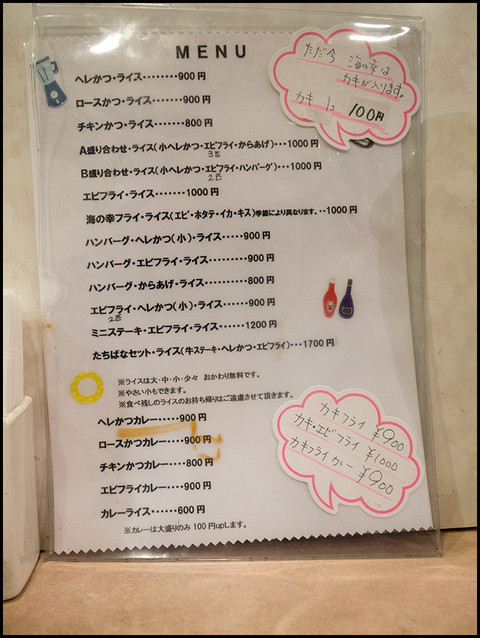 MENU
ヘレかつ・ライス・・・・・・・・900円
ロースかつ・ライス・・・・・・900円
チキンかつ・ライス・・・・・・800円
A盛り合わせ・ライス(小ヘレかつ・エビフライ・からあげ)・・・1000円
3匹
B盛り合わせ・ライス(小ヘレかつ・エビフライ・ハンバーグ)・・・1000円
2匹
エビフライ・ライス・・・・・・1000円
海の幸フライ・ライス(エビ・ホタテ・イカ・キス)季節により異なります。・・1000円
ハンバーグ・ヘレかつ(小)・ライス・・・・・900円
ハンバーグ・エビフライ・ライス・・・・・・900円
ハンバーグ・からあげ・ライス・・・・・・800円
エビフライ・ヘレかつ(小)・ライス・・・・・900円
2匹
ミニステーキ・エビフライ・ライス・・・・・1200円
たちばなセット・ライス(牛ステーキ・ヘレかつ・エビフライ)・・・1700円
※ライスは大・中・小・少々 おかわり無料です。
※やさい小もできます。
※食べ残しのライスのお持ち帰りはご遠慮させて頂きます。
ヘレかつカレー・・・・900円
ロースかつカレー・・・・900円
チキンかつカレー・・・・800円
エビフライカレー・・・・900円
カレーライス・・・・・・600円
※カレーは大盛りのみ100円upします。
ただ今 海の幸は
カキが入ります。
カキ 1コ 100円
カキフライ ¥900
カキ・エビフライ ¥1000
カキフライカレー ¥900